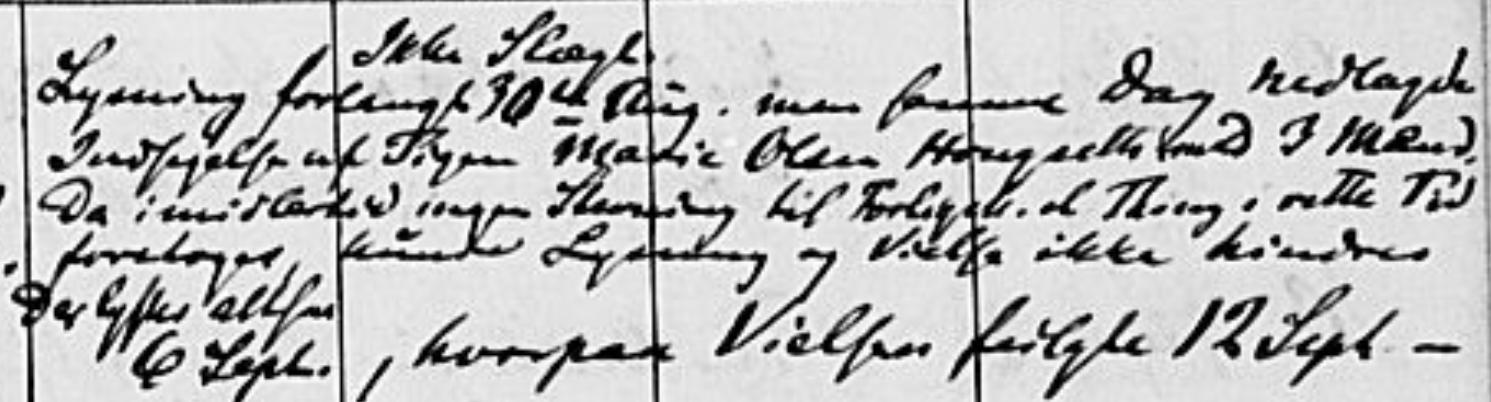 Ikke Slægt.
Lysning forlangt 30te Aug. men samme Dag nedlagde
Indsigelse af Pigen Marie Olsen med 3 Mænd.
Da imidlertid ingen Stevning til Forligelse. el Thing i rette Tid
foretoges, kunde Lysning og Vielse ikke hindres
Der lystes altsaa
6 Sept. , hvorpaa Vielsen fulgte 12 Sept. —